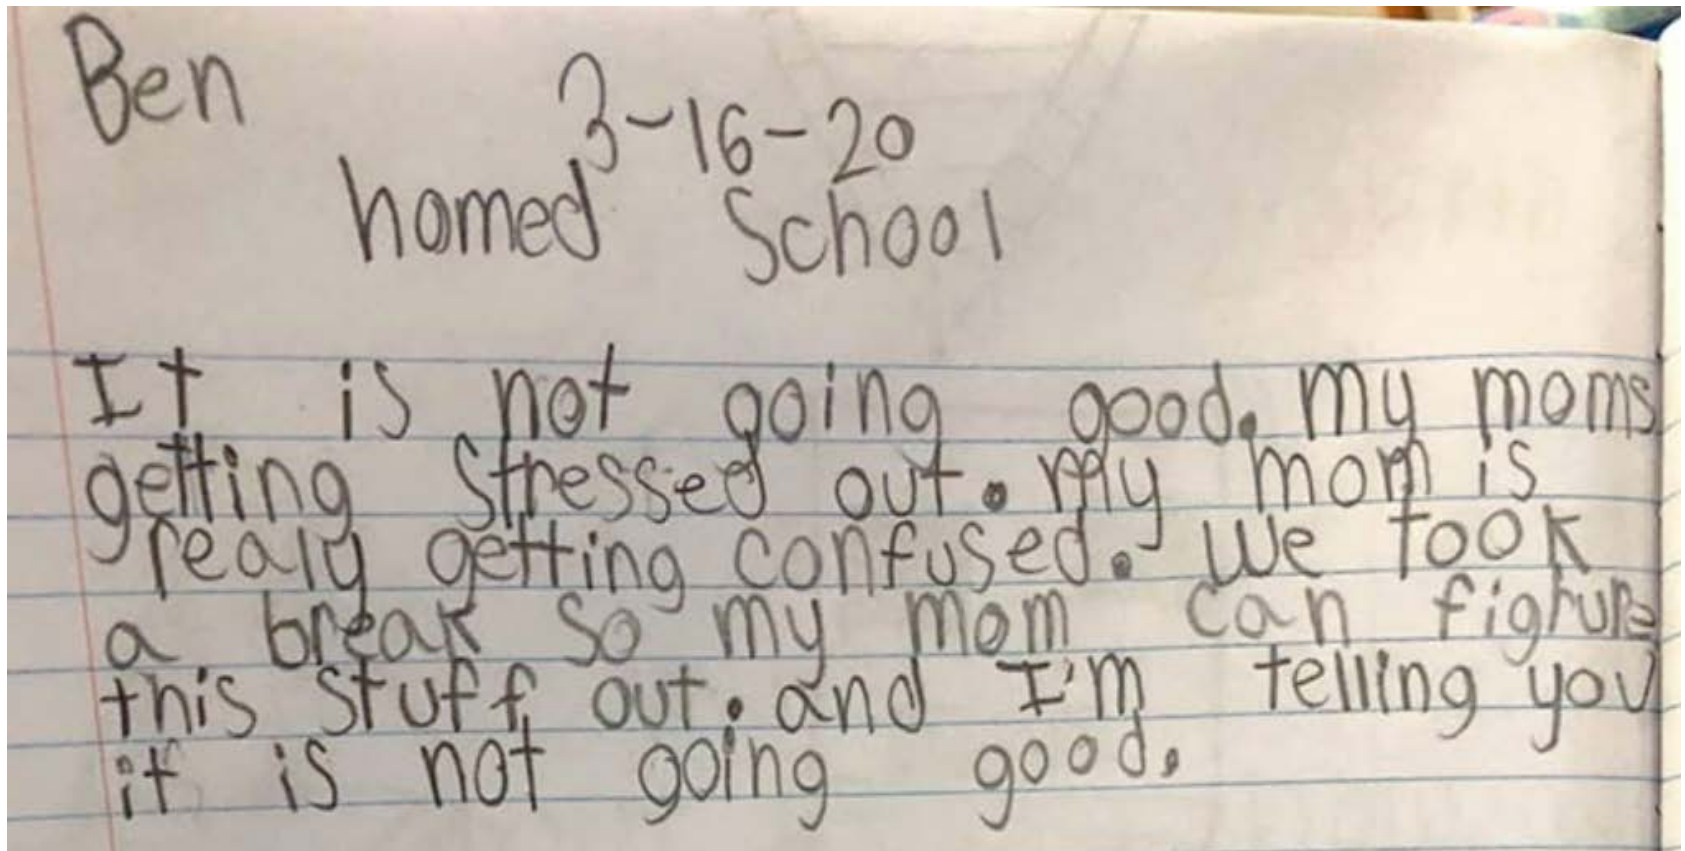 Ben
3-16-20
homed School
It is not going good. my moms
getting stressed out. my mom is
realy getting confused. We took
a break so my mom can fighure
this stuff out. and I'm telling you
it is not going good.